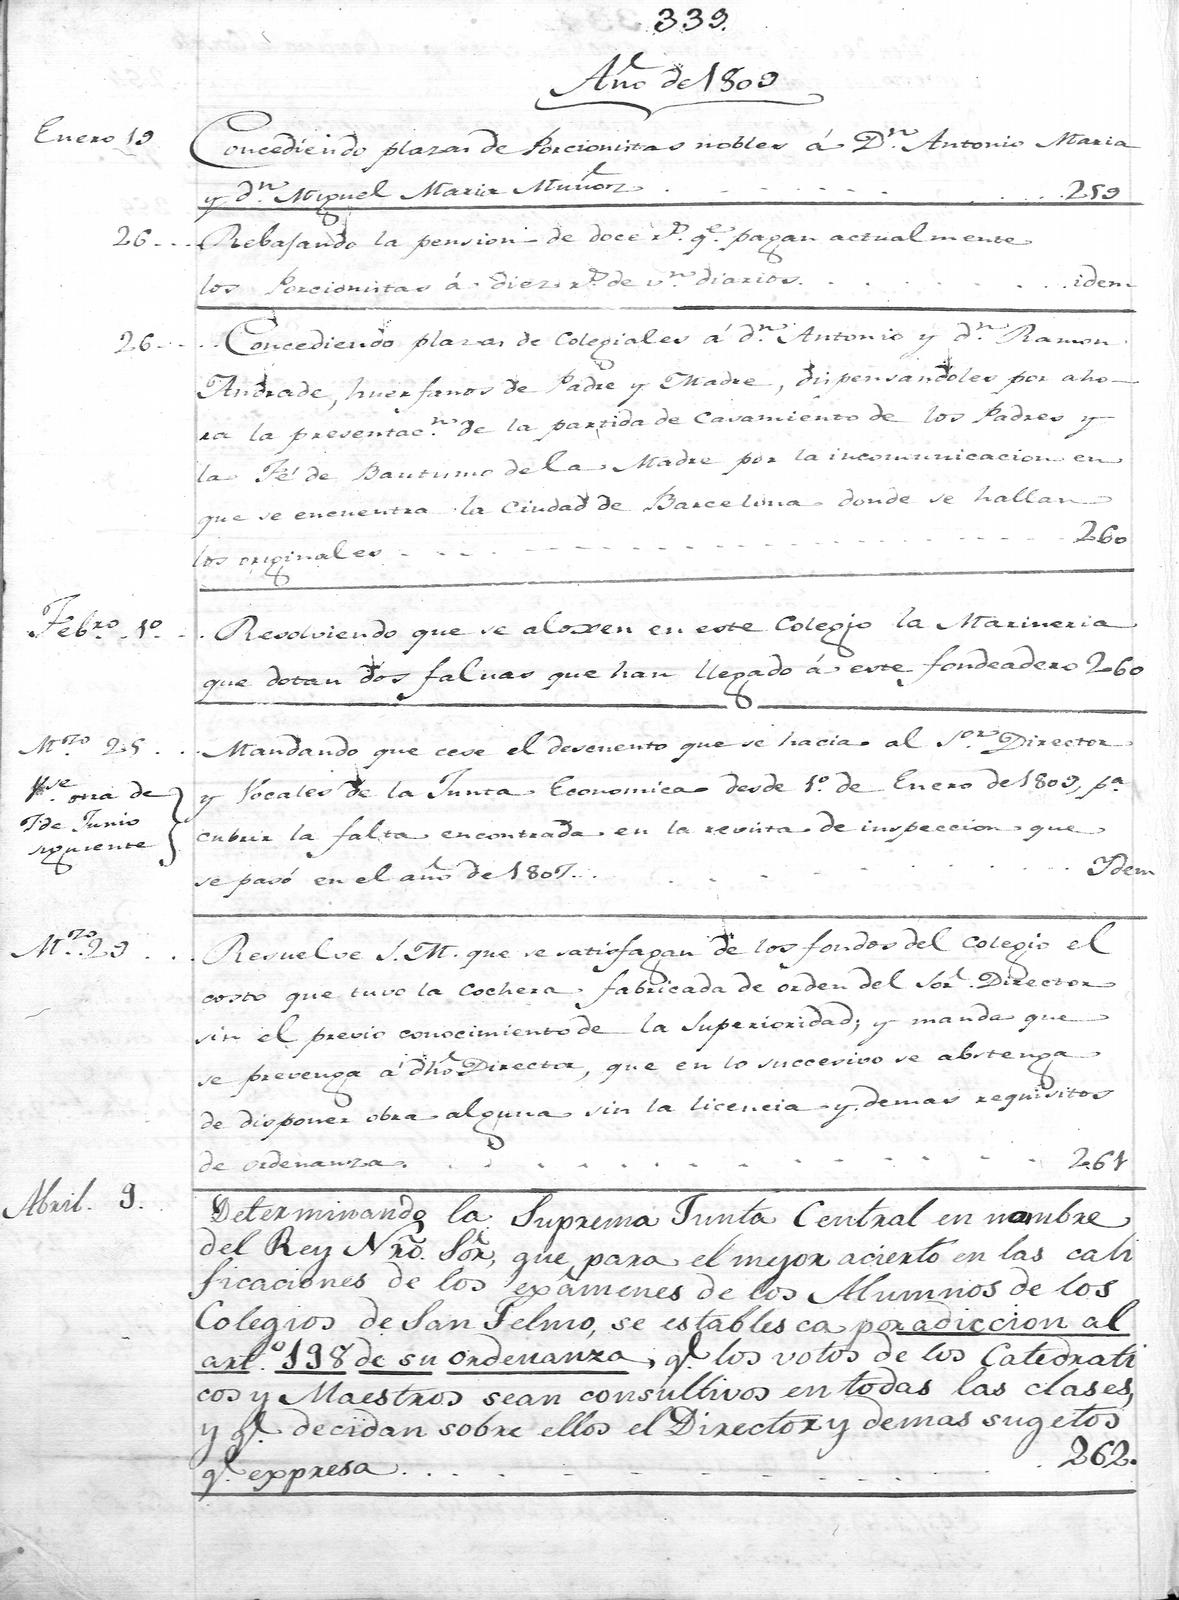 339.
Año de 1809
Enero 19 Concediendo plazas de Porcionistas nobles á Dn. Antonio Maria
y dn. Miguel Maria Muñoz . - - - - - - . . . 259
26 - - . Rebajando la pension de doce rs. qe. pagan actualmente
los Porcionistas á diez rs. de vn. diarios. . . . . . . . idem
26 - - . . Concediendo plazas de Colegiales á dn. Antonio y dn. Ramon
Andrade, huerfanos de Padre y Madre, dispensandoles por aho-
ra la presentacn. de la partida de Casamiento de los Padres y
la Fé de Bautismo de la Madre por la incomunicacion en
que se encuentra la Ciudad de Barcelona donde se hallan
los originales - - - - - - - - - - - - 260
Febro. 1o. - . Resolviendo que se aloxen en este Colegio la Marineria
que dotan dos faluas que han llegado á este fondeadero 260
Mzo. 25 . . . Mandando que cese el descuento que se hacia al Sor. Director
Vse. otra de
7 de Junio
siguiente
y Vocales de la Junta Economica desde 1o. de Enero de 1809, pa.
cubrir la falta encontrada en la revista de inspeccion que
se pasó en el año de 1807. . . . . . . . . Ydem
Mzo. 29 . . . Resuelve S. M. que se satisfagan de los fondos del Colegio el
costo que tuvo la Cochera fabricada de orden del Sor. Director
sin el previo conocimiento de la Superioridad; y manda que
se prevenga á dho. Director, que en lo succesivo se abstenga
de disponer obra alguna sin la licencia y demas requisitos
de ordenanza. . . - - - - - - - - - 261
Abril. 9. Determinando la Suprema Junta Central en nombre
del Rey Nro. Sor., que para el mejor acierto en las cali
ficaciones de los exâmenes de los Alumnos de los
Colegios de San Telmo, se establesca por adiccion al
art.o 198 de su ordenanza, q.e los votos de los Catedrati
cos y Maestros sean consultivos en todas las clases,
y q.e decidan sobre ellos el Director y demas sugetos
q.e expresa . . . - - - - - - - . 262.